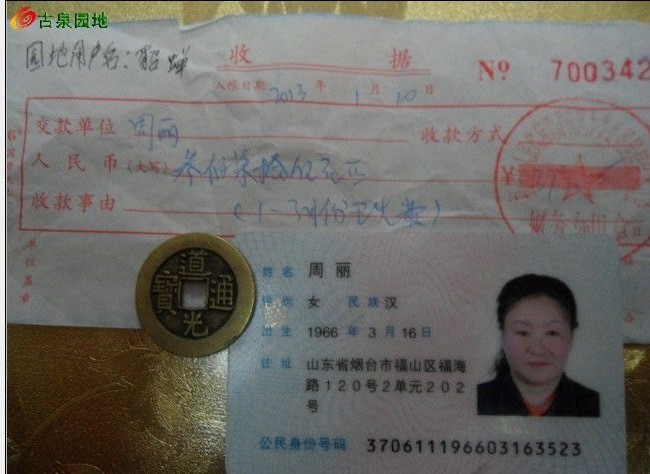 古泉园地
园地用户名：貂蝉
收 据
№ 700342
入账日期：2013 年 1 月 10 日
交款单位 周丽 收款方式
人民币（大写）
¥
收款事由
单位盖章
道光通寶
姓名 周丽
性别 女 民族 汉
出生 1966 年 3 月 16 日
住址 山东省烟台市福山区福海
路120号2单元202
号
公民身份号码 370611196603163523